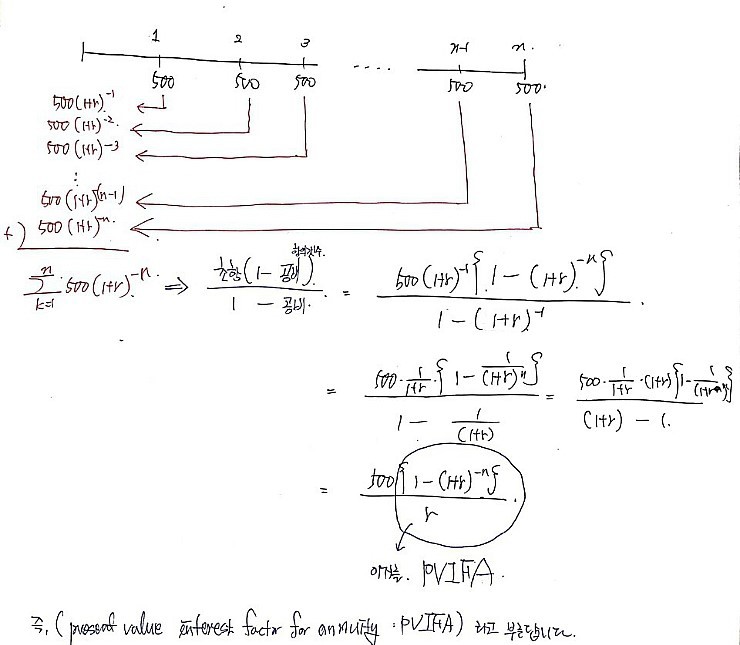 1 2 3 n-1 n.
500 500 500 ···· 500 500.
500(1+r)⁻¹
500(1+r)⁻²
500(1+r)⁻³
⋮
500(1+r)^(n-1)
+) 500(1+r)⁻ⁿ.
∑_{k=1}^{n} 500(1+r)⁻ⁿ. ⇒ 초항(1 - 공비^{항의갯수.}) / 1 - 공비. = 500(1+r)⁻¹{1 - (1+r)⁻ⁿ} / 1 - (1+r)⁻¹ .
= 500·1/(1+r)·{1 - 1/(1+r)ⁿ} / 1 - 1/(1+r) = 500·1/(1+r)·(1+r){1 - 1/(1+r)ⁿ} / (1+r) - 1.
= 500{1 - (1+r)⁻ⁿ} / r .
이것을. PVIFA.
즉, (present value interest factor for annuity : PVIFA) 라고 부른답니다.